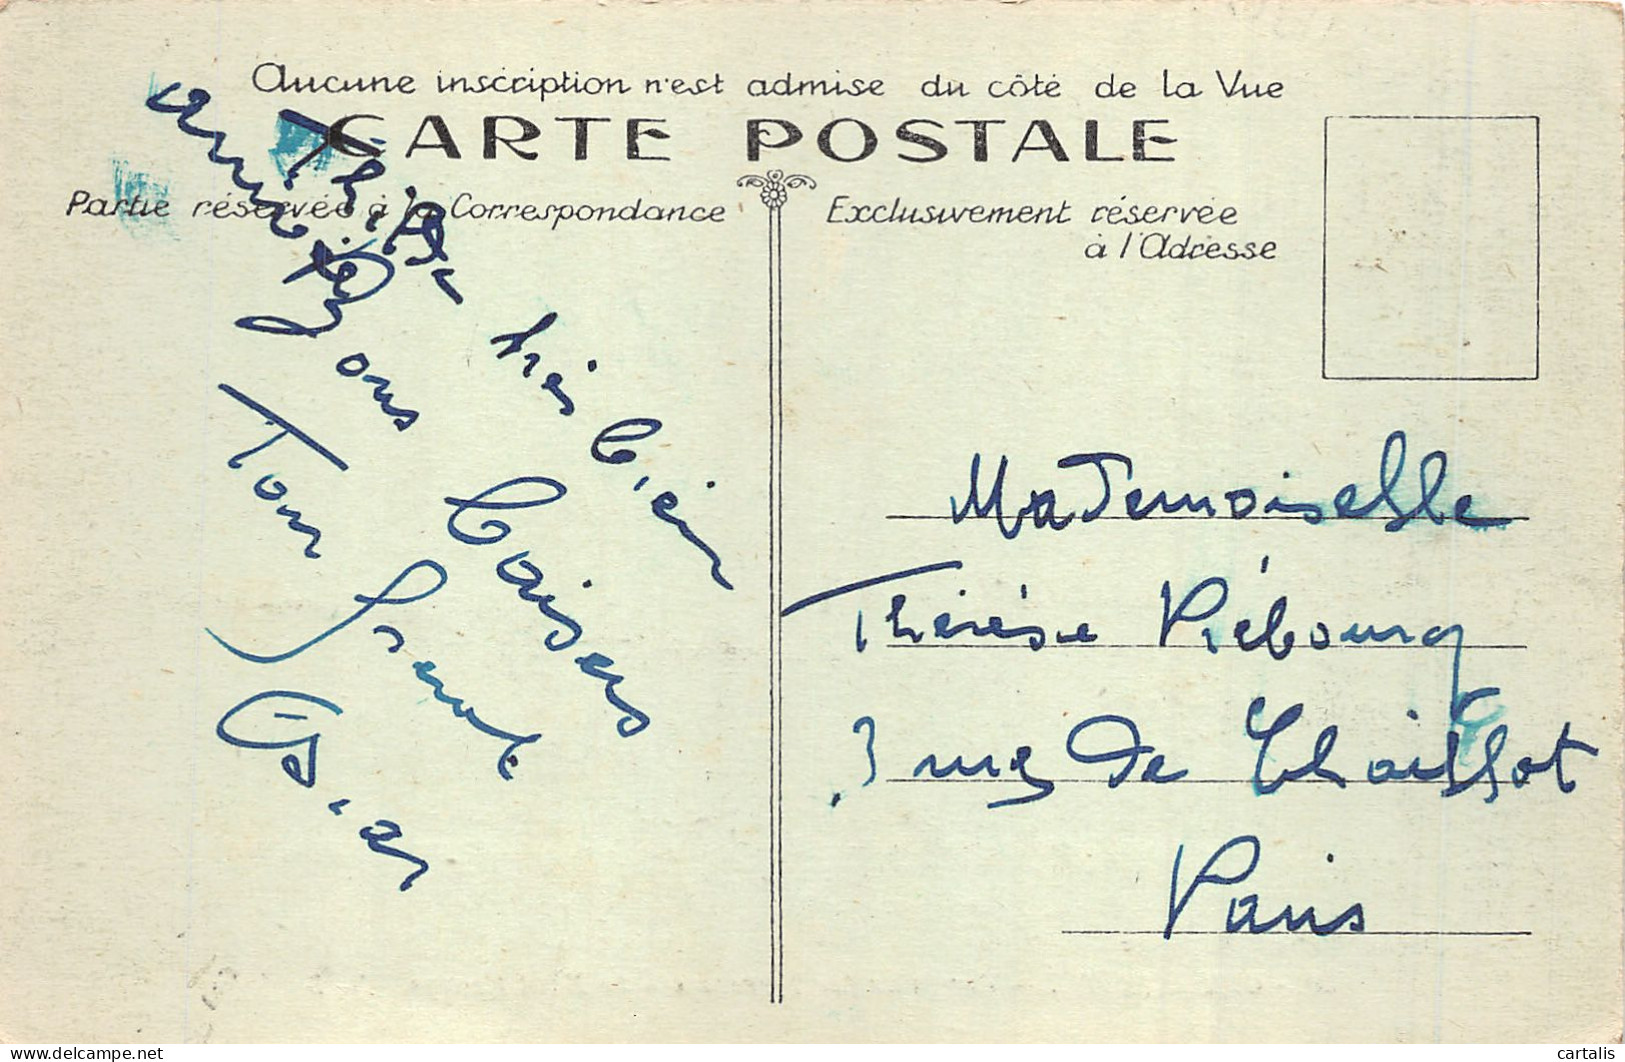 Aucune inscription n'est admise du côté de la Vue
CARTE POSTALE
Partie réservée à la Correspondance
Exclusivement réservée
à l'Adresse
très bien
Bons baisers
Ton
Mademoiselle
Thérèse Piébourg
3 rue de Chaillot
Paris
delcampe.net
cartalis